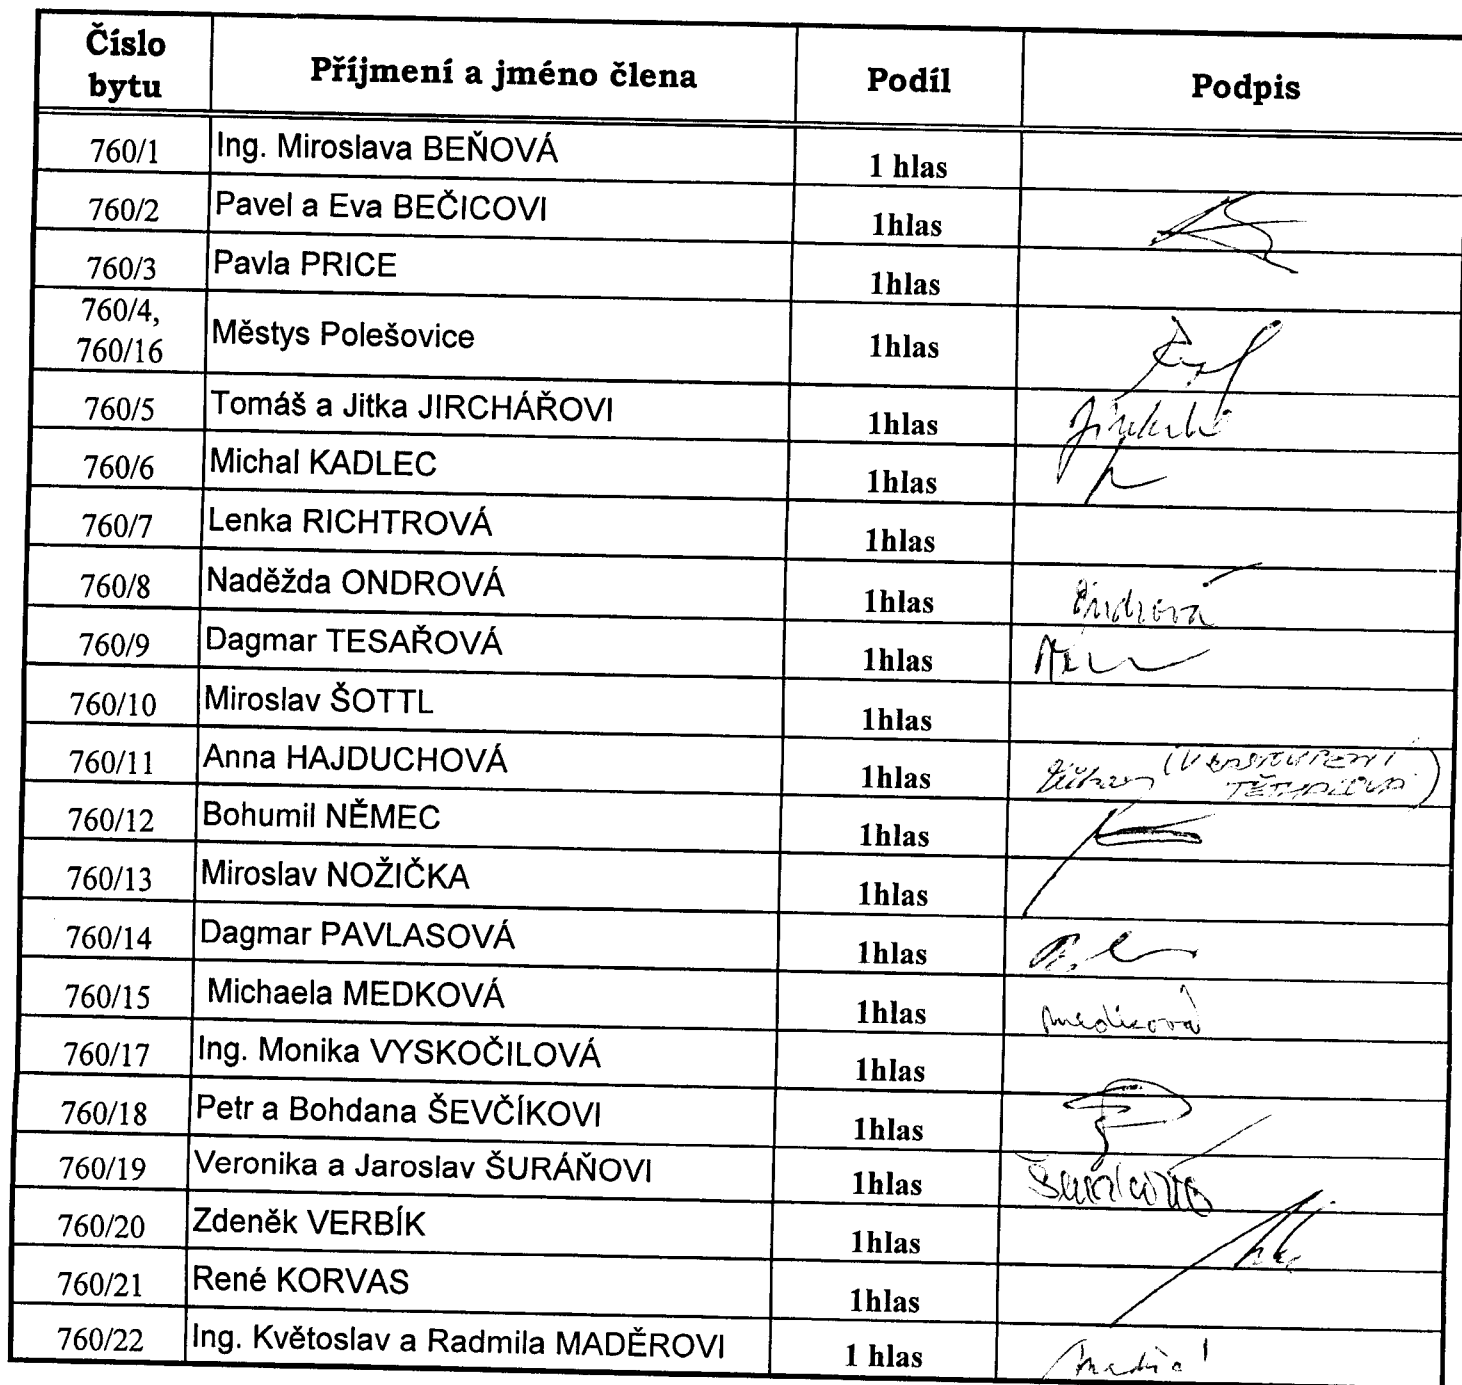 Číslo bytu Příjmení a jméno člena Podíl Podpis
760/1 Ing. Miroslava BEŇOVÁ 1 hlas
760/2 Pavel a Eva BEČICOVI 1hlas
760/3 Pavla PRICE 1hlas
760/4, 760/16 Městys Polešovice 1hlas
760/5 Tomáš a Jitka JIRCHÁŘOVI 1hlas
760/6 Michal KADLEC 1hlas
760/7 Lenka RICHTROVÁ 1hlas
760/8 Naděžda ONDROVÁ 1hlas Ondrová
760/9 Dagmar TESAŘOVÁ 1hlas
760/10 Miroslav ŠOTTL 1hlas
760/11 Anna HAJDUCHOVÁ 1hlas
760/12 Bohumil NĚMEC 1hlas
760/13 Miroslav NOŽIČKA 1hlas
760/14 Dagmar PAVLASOVÁ 1hlas
760/15 Michaela MEDKOVÁ 1hlas Medková
760/17 Ing. Monika VYSKOČILOVÁ 1hlas
760/18 Petr a Bohdana ŠEVČÍKOVI 1hlas
760/19 Veronika a Jaroslav ŠURÁŇOVI 1hlas
760/20 Zdeněk VERBÍK 1hlas
760/21 René KORVAS 1hlas
760/22 Ing. Květoslav a Radmila MADĚROVI 1 hlas